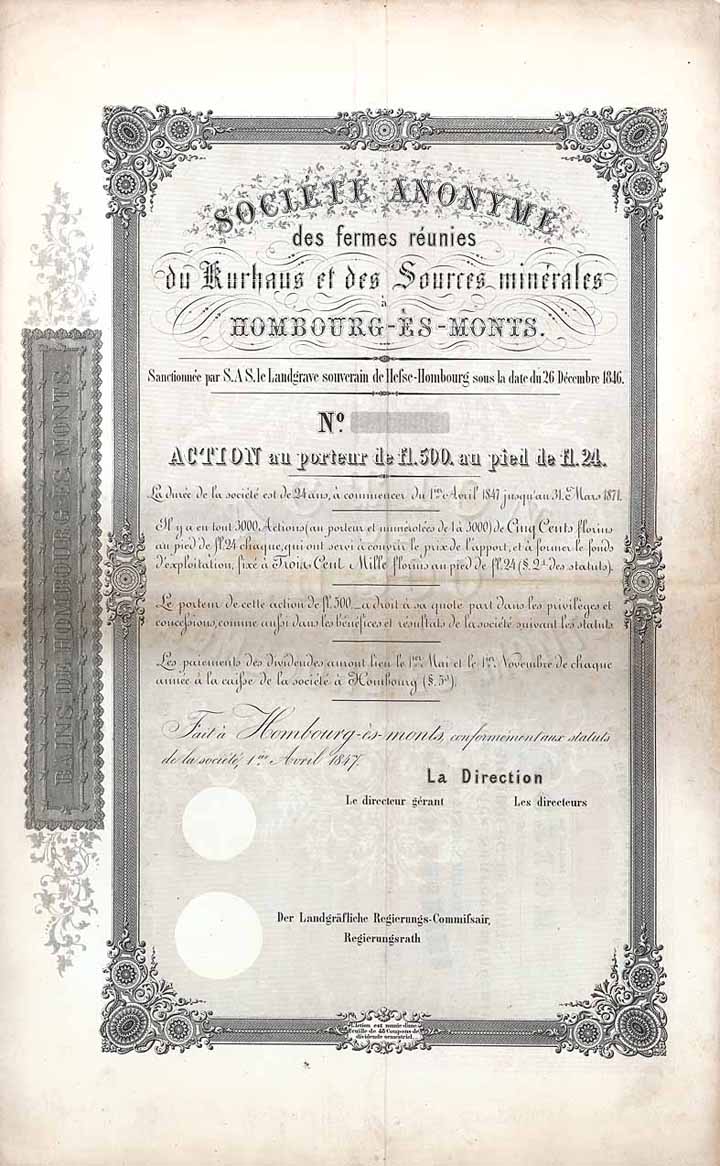 SOCIÉTÉ ANONYME
des fermes réunies
du Kurhaus et des Sources minérales
à
HOMBOURG-ÈS-MONTS.
Sanctionnée par S.A S. le Landgrave souverain de Hefse-Hombourg sous la date du 26 Décembre 1846.
Nº.
ACTION au porteur de fl. 500. au pied de fl. 24.
La durée de la société est de 24 ans, à commencer du 1er Avril 1847 jusqu'au 31. Mars 1871.
Il y a en tout 3000. Actions (au porteur et numérotées de 1 à 3000) de Cinq Cents florins
au pied de fl. 24 chaque, qui ont servi à couvrir le prix de l'apport, et à former le fonds
d'exploitation, fixé à Trois Cent Mille florins au pied de fl. 24 (§. 2d des statuts).
Le porteur de cette action de fl. 500._ a droit à sa quote part dans les privilèges et
concefsions, comme aufsi dans les bénéfices et résultats de la société suivant les statuts.
Les paiements des dividendes auront lieu le 1er Mai et le 1er Novembre de chaque
année à la caifse de la société à Hombourg (§. 5d).
Fait à Hombourg-ès-monts, conformément aux statuts
de la société, 1er Avril 1847.
La Direction
Le directeur gérant Les directeurs
Der Landgräfliche Regierungs-Commifsair,
Regierungsrath
L'action est munie d'une
feuille de 48 Coupons de
dividende semestriel.
BAINS DE HOMBOURG-ÈS-MONTS.